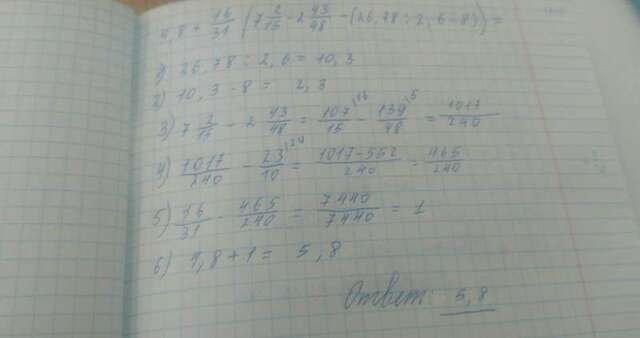 4,8 + 16/31 (7 2/15 - 2 43/48 - (26,78 : 2,6 - 8)) =
1) 26,78 : 2,6 = 10,3
2) 10,3 - 8 = 2,3
3) 7 2/15 - 2 43/48 = 107/15 |16 - 139/48 |5 = 1017/240
4) 1017/240 - 23/10 |24 = 1017-552/240 = 465/240
5) 16/31 · 465/240 = 7440/7440 = 1
6) 4,8 + 1 = 5,8
Ответ: 5,8